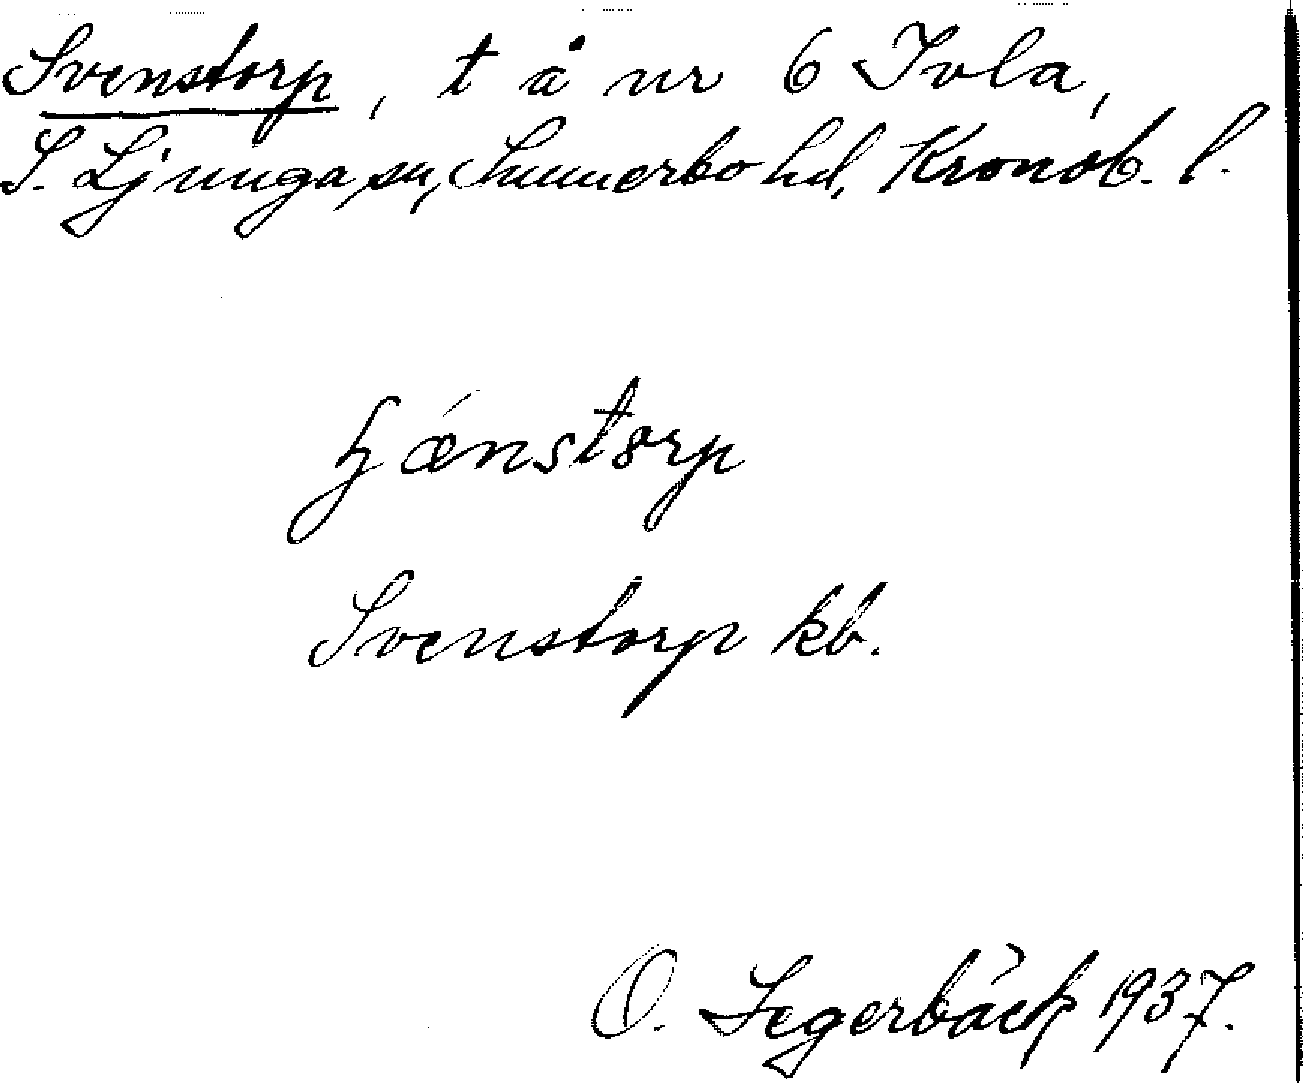 Svenstorp, t å nr 6 Ivla,
S. Ljunga sn, Sunnerbo hd, Kronob. l.
Svenstorp kb.
O. Segerbäck 1937.